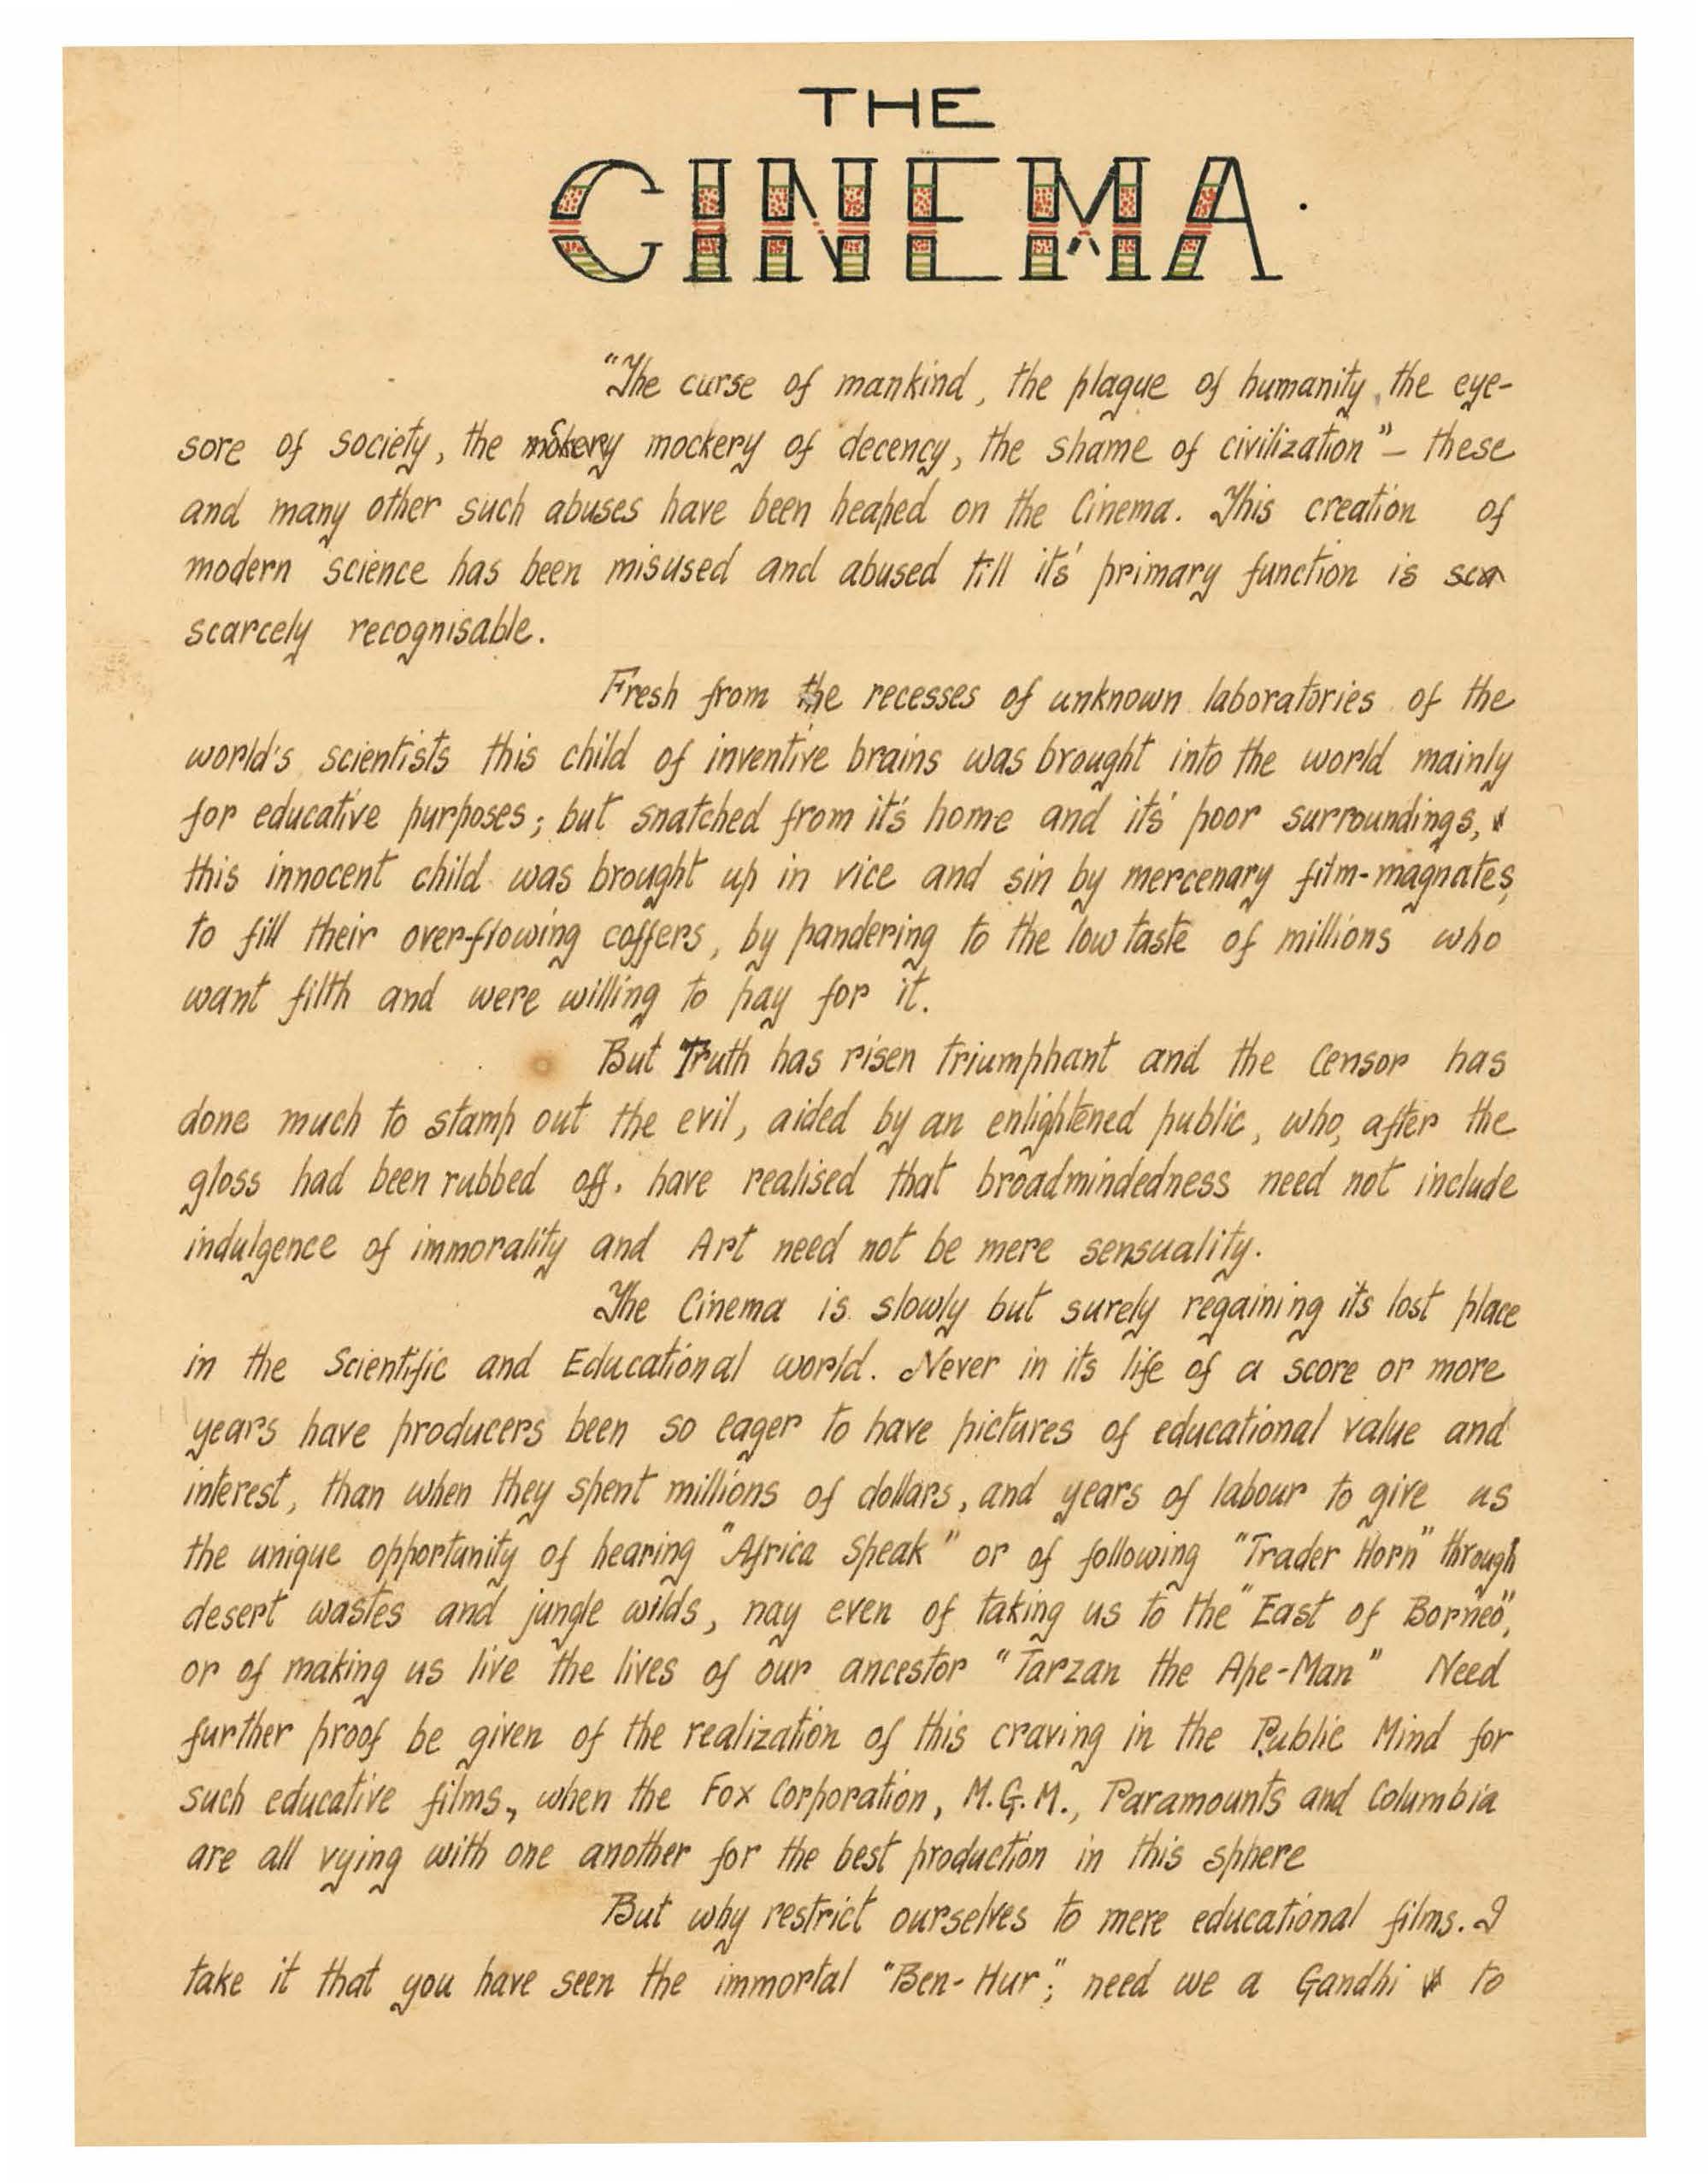 THE
CINEMA.
"The curse of mankind, the plague of humanity, the eye-
sore of society, the mokery mockery of decency, the shame of civilization" – these
and many other such abuses have been heaped on the Cinema. This creation of
modern science has been misused and abused till it's primary function is sca
scarcely recognisable.
Fresh from the recesses of unknown laboratories of the
world's scientists this child of inventive brains was brought into the world mainly
for educative purposes; but snatched from it's home and it's poor surroundings,
this innocent child was brought up in vice and sin by mercenary film-magnates,
to fill their over-flowing coffers, by pandering to the low taste of millions who
want filth and were willing to pay for it.
But Truth has risen triumphant and the Censor has
done much to stamp out the evil, aided by an enlightened public, who, after the
gloss had been rubbed off, have realised that broadmindedness need not include
indulgence of immorality and Art need not be mere sensuality.
The Cinema is slowly but surely regaining its lost place
in the Scientific and Educational world. Never in its life of a score or more
years have producers been so eager to have pictures of educational value and
interest, than when they spent millions of dollars, and years of labour to give us
the unique opportunity of hearing "Africa Speak" or of following "Trader Horn" through
desert wastes and jungle wilds, nay even of taking us to the "East of Borneo",
or of making us live the lives of our ancestor "Tarzan the Ape-Man" Need
further proof be given of the realization of this craving in the Public Mind for
such educative films, when the Fox Corporation, M.G.M., Paramounts and Columbia
are all vying with one another for the best production in this sphere
But why restrict ourselves to mere educational films. I
take it that you have seen the immortal "Ben-Hur"; need we a Gandhi to